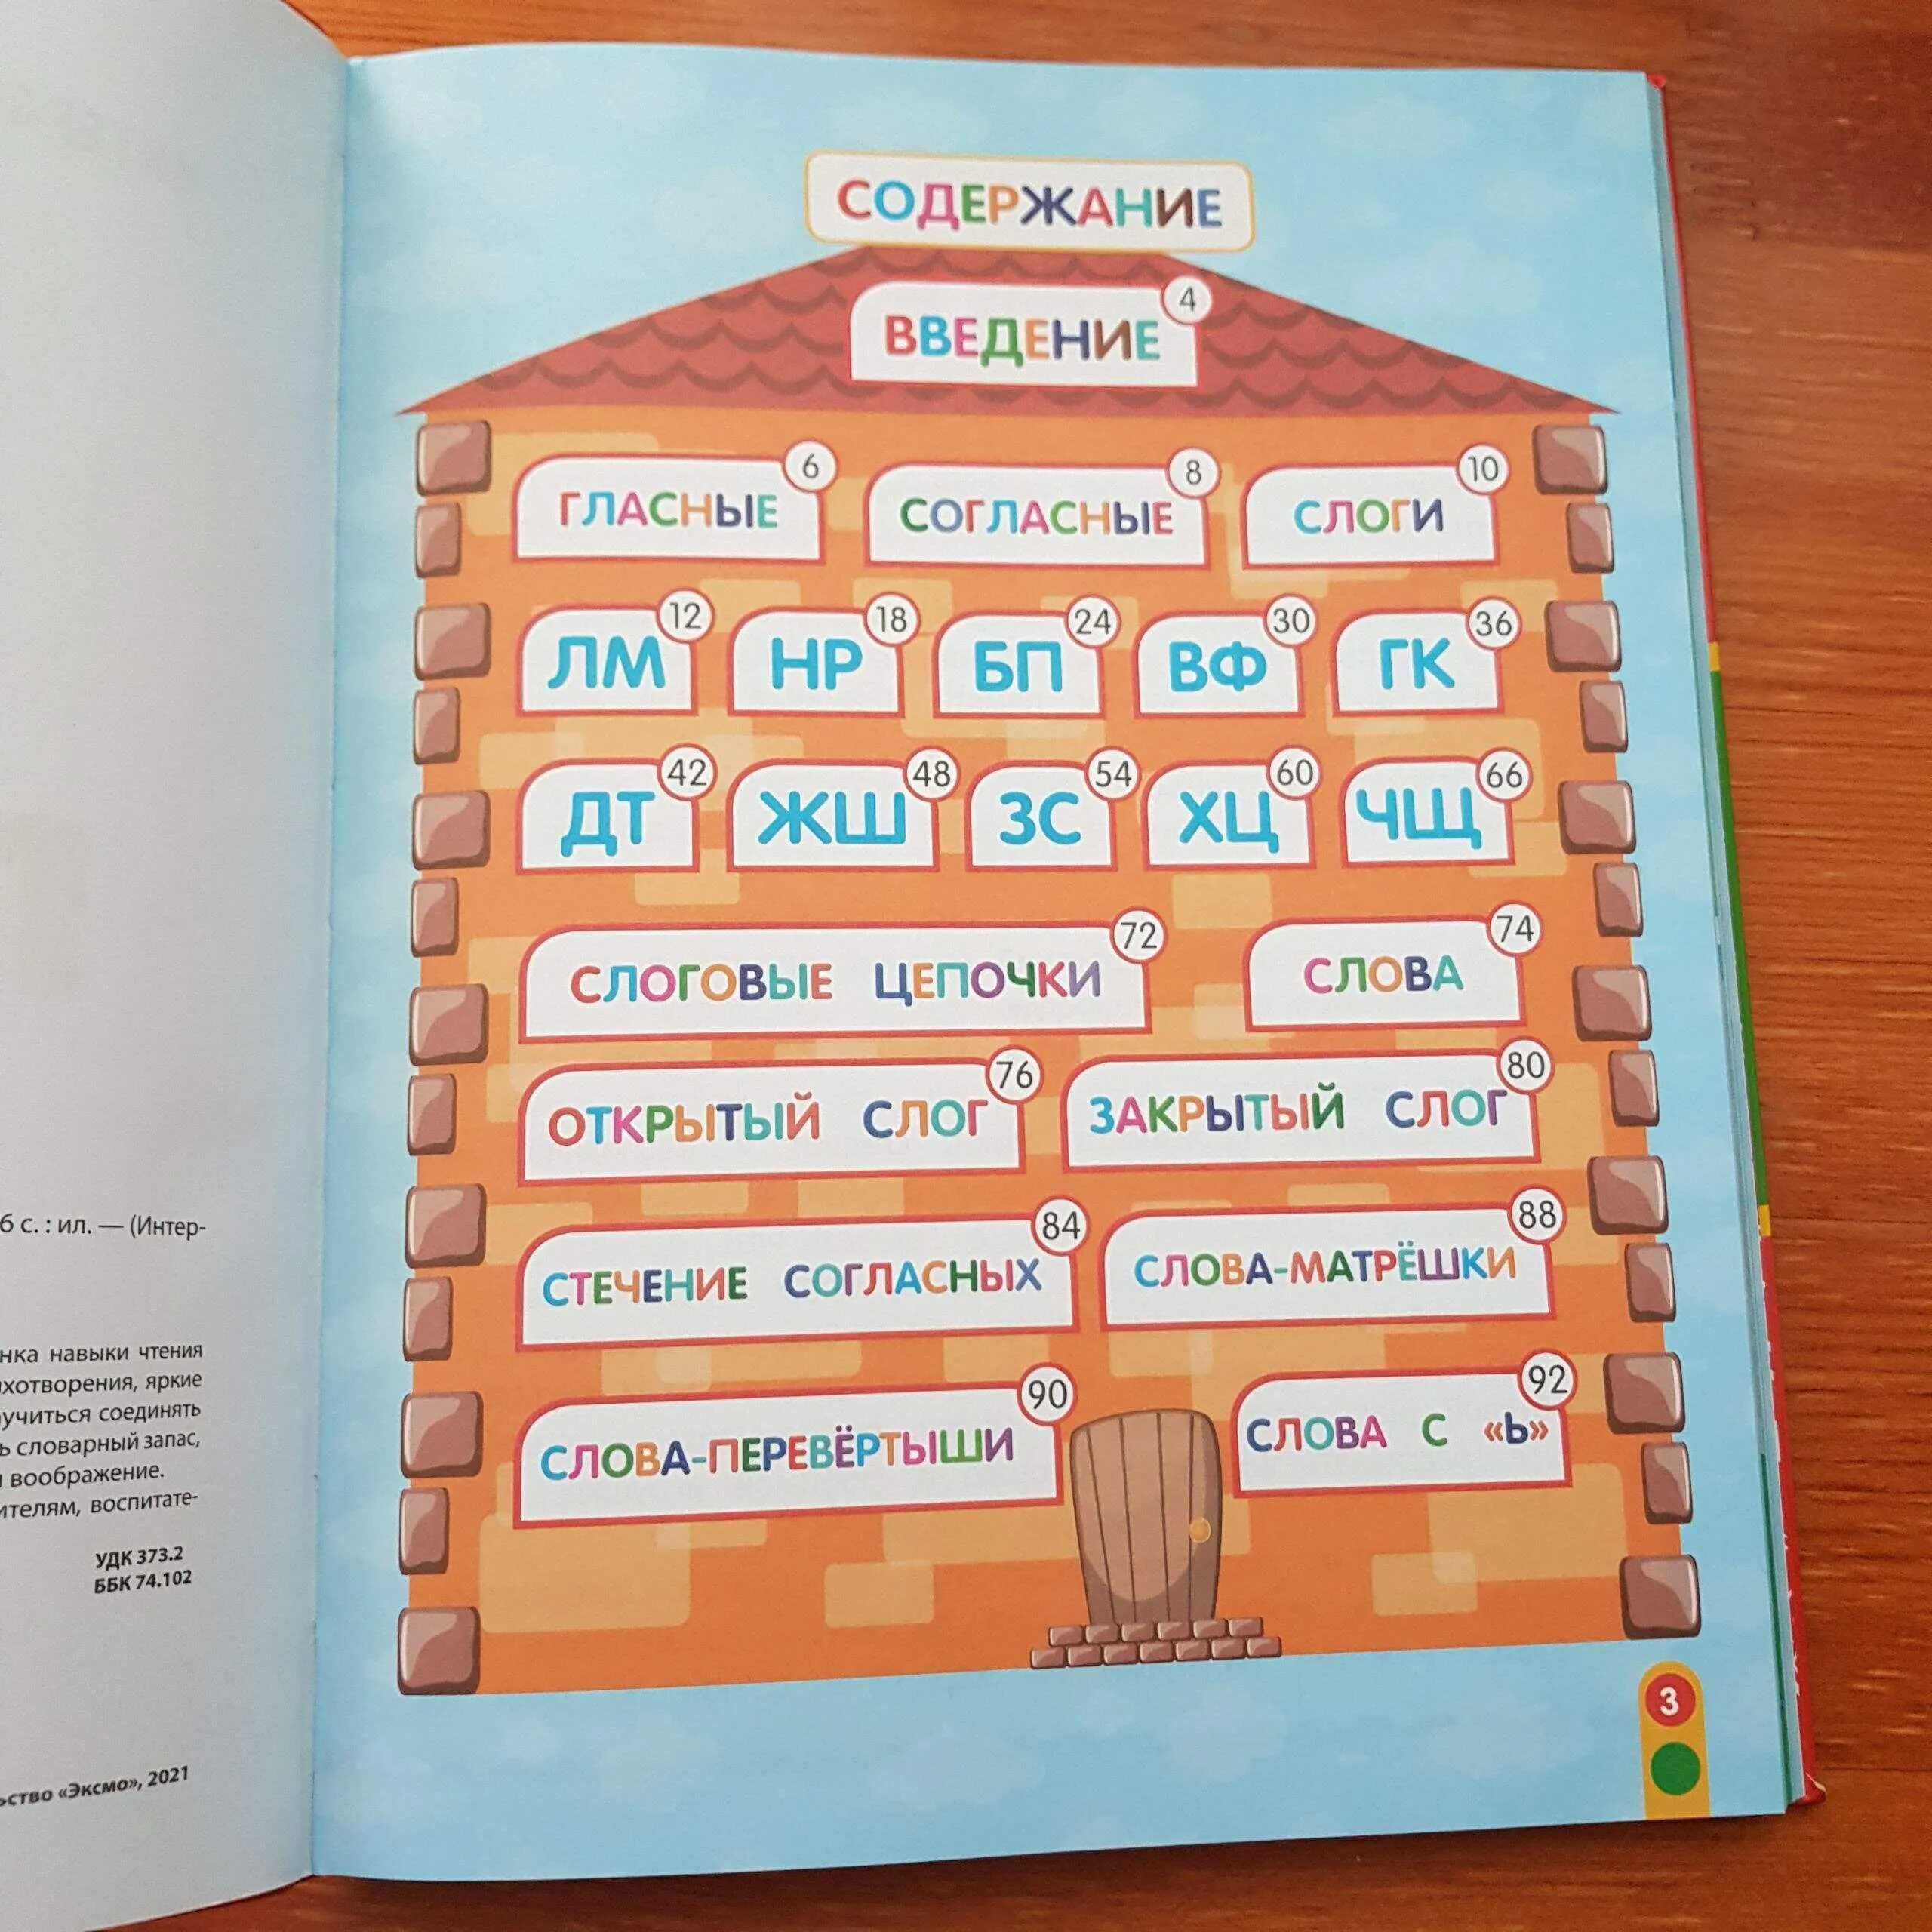 6 с. : ил. — (Интер-
навыки чтения
яркие
соединять
словарный запас,
воображение.
воспитате-
УДК 373.2
ББК 74.102
«Эксмо», 2021
СОДЕРЖАНИЕ
ВВЕДЕНИЕ 4
ГЛАСНЫЕ 6 СОГЛАСНЫЕ 8 СЛОГИ 10
ЛМ 12 НР 18 БП 24 ВФ 30 ГК 36
ДТ 42 ЖШ 48 ЗС 54 ХЦ 60 ЧЩ 66
СЛОГОВЫЕ ЦЕПОЧКИ 72 СЛОВА 74
ОТКРЫТЫЙ СЛОГ 76 ЗАКРЫТЫЙ СЛОГ 80
СТЕЧЕНИЕ СОГЛАСНЫХ 84 СЛОВА-МАТРЁШКИ 88
СЛОВА-ПЕРЕВЁРТЫШИ 90 СЛОВА С «Ь» 92
3